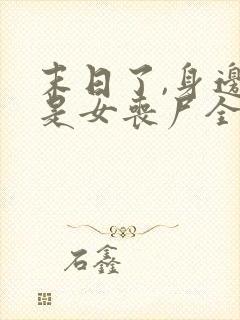 末日了,身边
是女丧尸全
石鑫